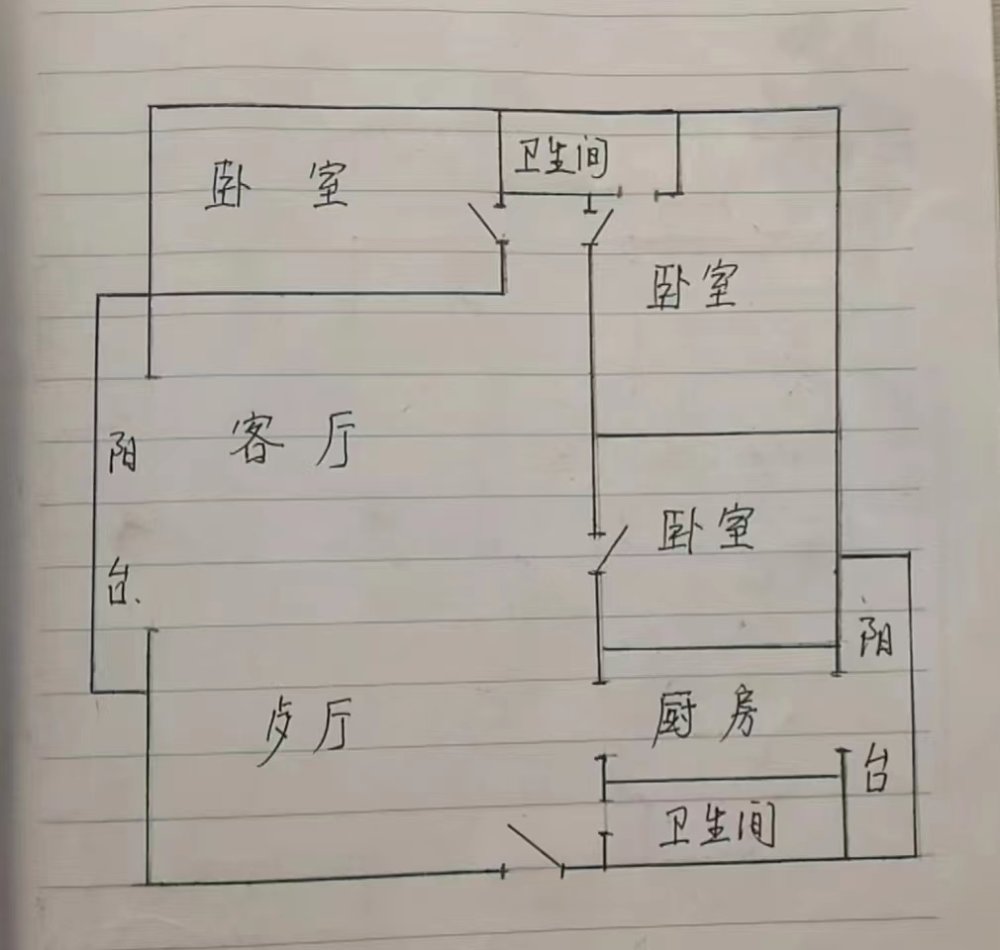 卫生间
卧室
卧室
客厅
阳台
卧室
阳台
歺厅
厨房
卫生间